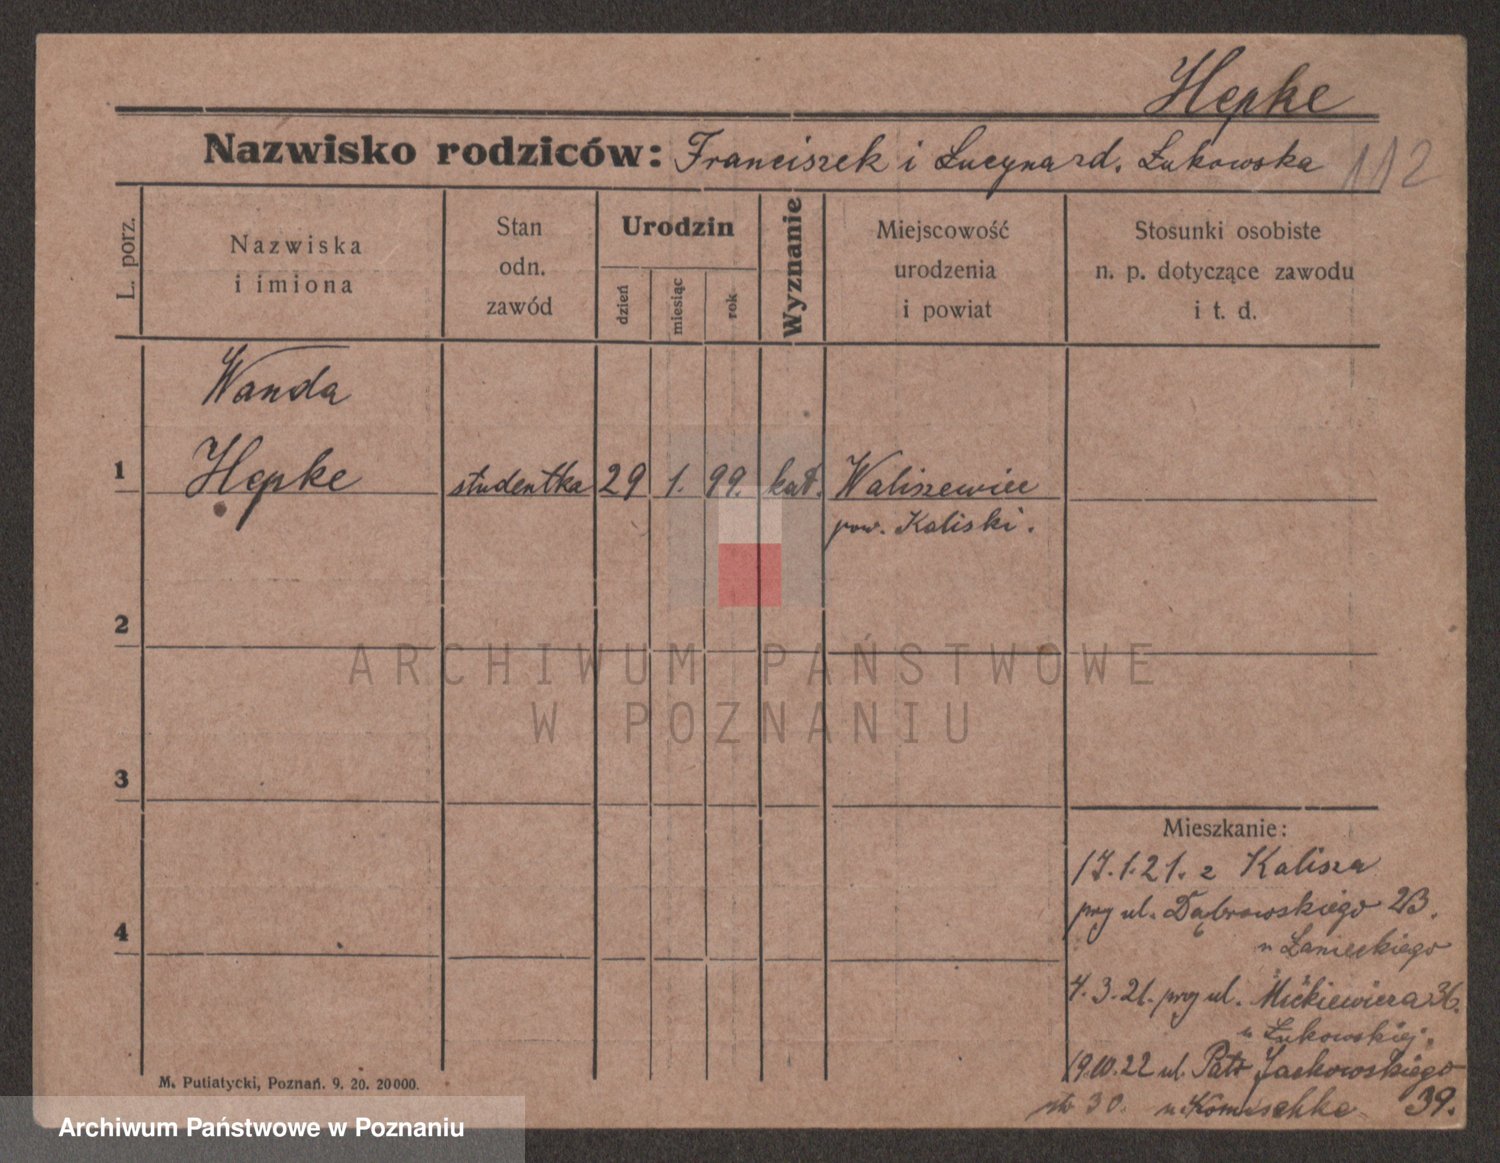 Hepke
Nazwisko rodziców: Franciszek i Lucyna rd. Łukowska 112
L. porz.
Nazwiska
i imiona
Stan
odn.
zawód
Urodzin
dzień
miesiąc
rok
Wyznanie
Miejscowość
urodzenia
i powiat
Stosunki osobiste
n. p. dotyczące zawodu
i t. d.
Wanda
1 Hepke studentka 29 1. 99. kat. Waliszewice
pow. Kaliski.
2
3
4
ARCHIWUM PAŃSTWOWE
W POZNANIU
Mieszkanie:
17.1.21. z Kalisza
przy ul. Dąbrowskiego 23.
u Łanieckiego
4.3.21. przy ul. Mickiewicza 36.
u Łukowskiej.
19.10.22 ul. Patr Jackowskiego
30. u Komischke 39.
M. Putiatycki, Poznań. 9. 20. 20000.
Archiwum Państwowe w Poznaniu